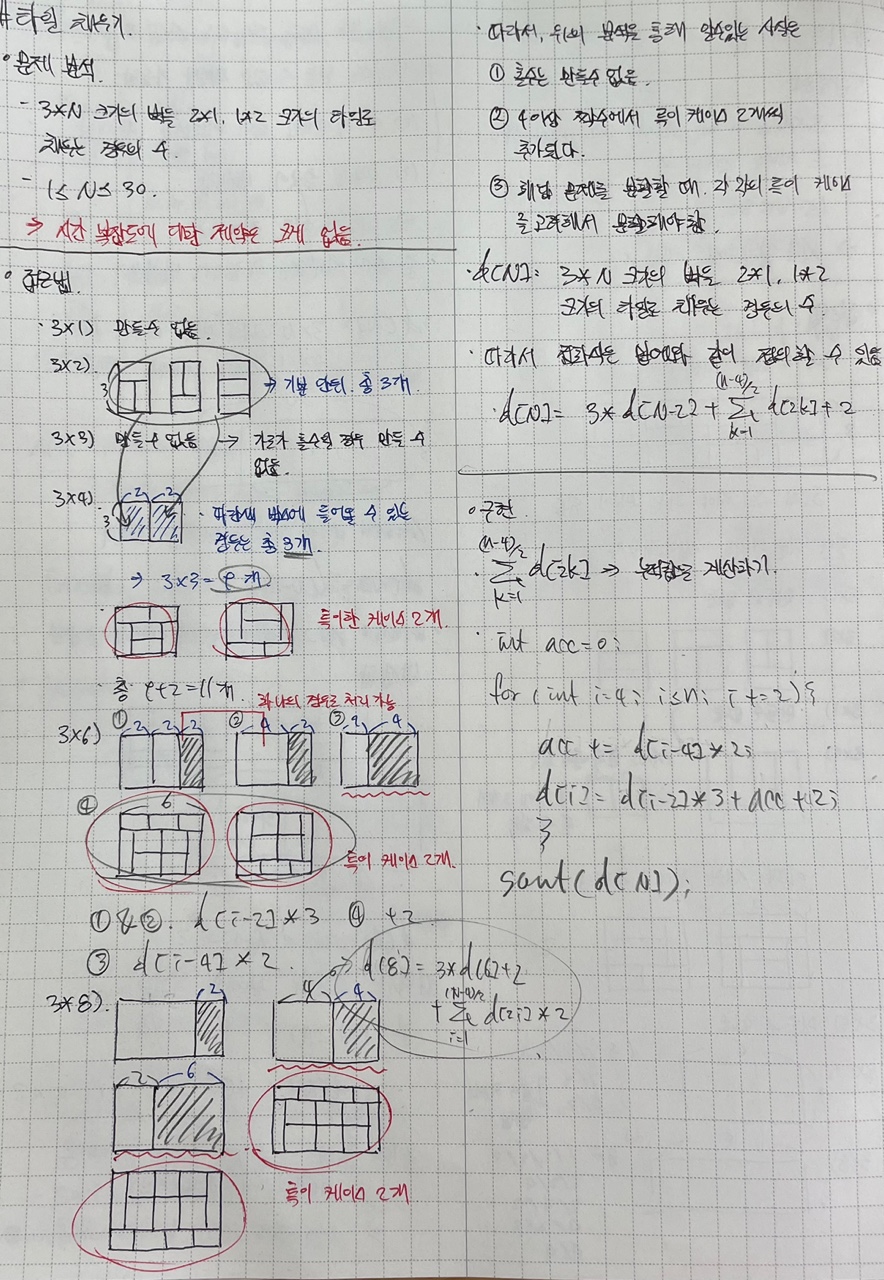 # 타일 채우기.
• 문제 분석.
- 3*N 크기의 벽을 2*1, 1*2 크기의 타일로
채우는 경우의 수.
- 1 ≤ N ≤ 30.
→ 시간 복잡도에 대한 제약은 크게 없음.
• 접근법.
· 3×1) 만들수 없음.
3×2)
3
→ 기본 단위. 총 3개.
3×3) 만들수 없음 → 가로가 홀수일 경우 만들 수
없음.
3×4)
2 2
3
· 파란색 박스에 들어올 수 있는
경우는 총 3개.
→ 3×3 = 9개.
특이한 케이스 2개.
· 총 9+2 = 11개.
하나의 경우로 처리 가능
3×6) ① 2 2 2 ② 4 2 ③ 2 4
④ 6
특이 케이스 2개.
①&②. d[i-2]*3 ④ +2
③ d[i-4]*2.
→ d[8] = 3*d[6]+2
+ (N-4)/2 Σ i=1 d[2i]*2
3*8). 2 4 4
2 6
특이 케이스 2개
· 따라서, 위의 분석을 통해 알수있는 사실은
① 홀수는 만들수 없음.
② 4이상 짝수에서 특이 케이스 2개씩
추가된다.
③ 해당 문제를 분할할 때, 각각의 특이 케이스
를 고려해서 분할해야함.
· d[N]: 3*N 크기의 벽을 2*1, 1*2
크기의 타일로 채우는 경우의 수
· 따라서 점화식은 밑에와 같이 정의할 수 있음
· d[N] = 3*d[N-2] + (N-4)/2 Σ k=1 d[2k] + 2
• 구현
· (n-4)/2 Σ k=1 d[2k] → 누적합으로 계산하기.
· int acc=0;
for (int i=4; i≤n; i+=2){
acc += d[i-4]*2;
d[i] = d[i-2]*3+acc+2;
}
sout(d[N]);